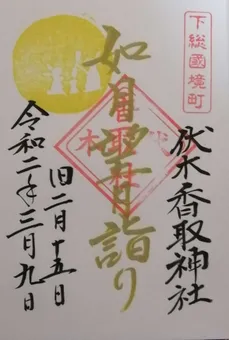 下総國境町
伏木香取神社
如月望月詣り
伏木
香取社
旧二月十五日
令和二年三月九日